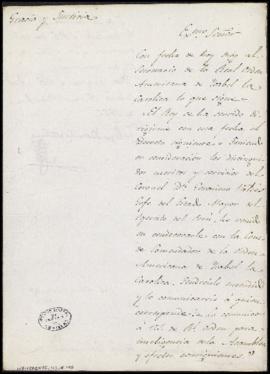 Gracia y Justicia
Exmo. Señor
Con fecha de hoy digo al
Secretario de la Real Orden
Americana de Isabel la
Catolica lo que sigue.
El Rey se ha servido
dirigirme con esta fecha el
Decreto siguiente = Teniendo
en consideracion los distinguidos
meritos y servicios del
Coronel Dn. Geronimo Valdes
Gefe del Estado Mayor del
Egercito del Perú, he venido
en condecorarle con la Cruz
de Comendador de la Orden
Americana de Isabel la
Catolica. Tendreislo entendido
y lo comunicareis á quien
corresponda. Lo comunico
á V.E. de Rl. Orden para
inteligencia de la Asamblea
y efectos consiguientes.